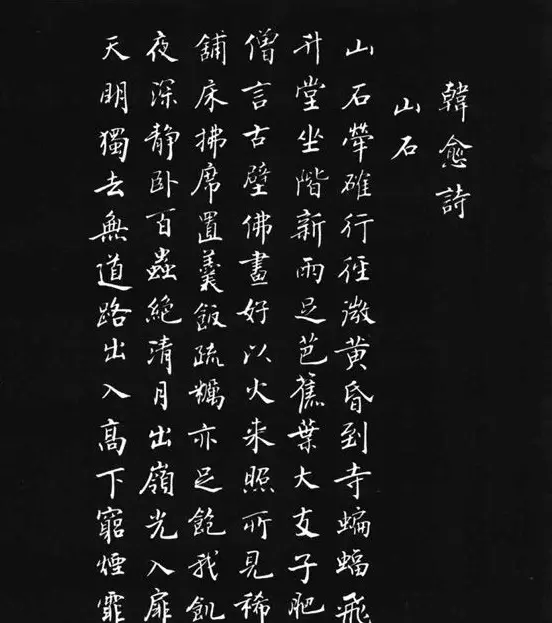 韓愈詩
山石
山石犖确行徑微黃昏到寺蝙蝠飛
升堂坐階新雨足芭蕉葉大支子肥
僧言古壁佛畫好以火来照所見稀
鋪床拂席置羹飯疏糲亦足飽我飢
夜深靜卧百蟲絕清月出嶺光入扉
天明獨去無道路出入高下窮煙霏